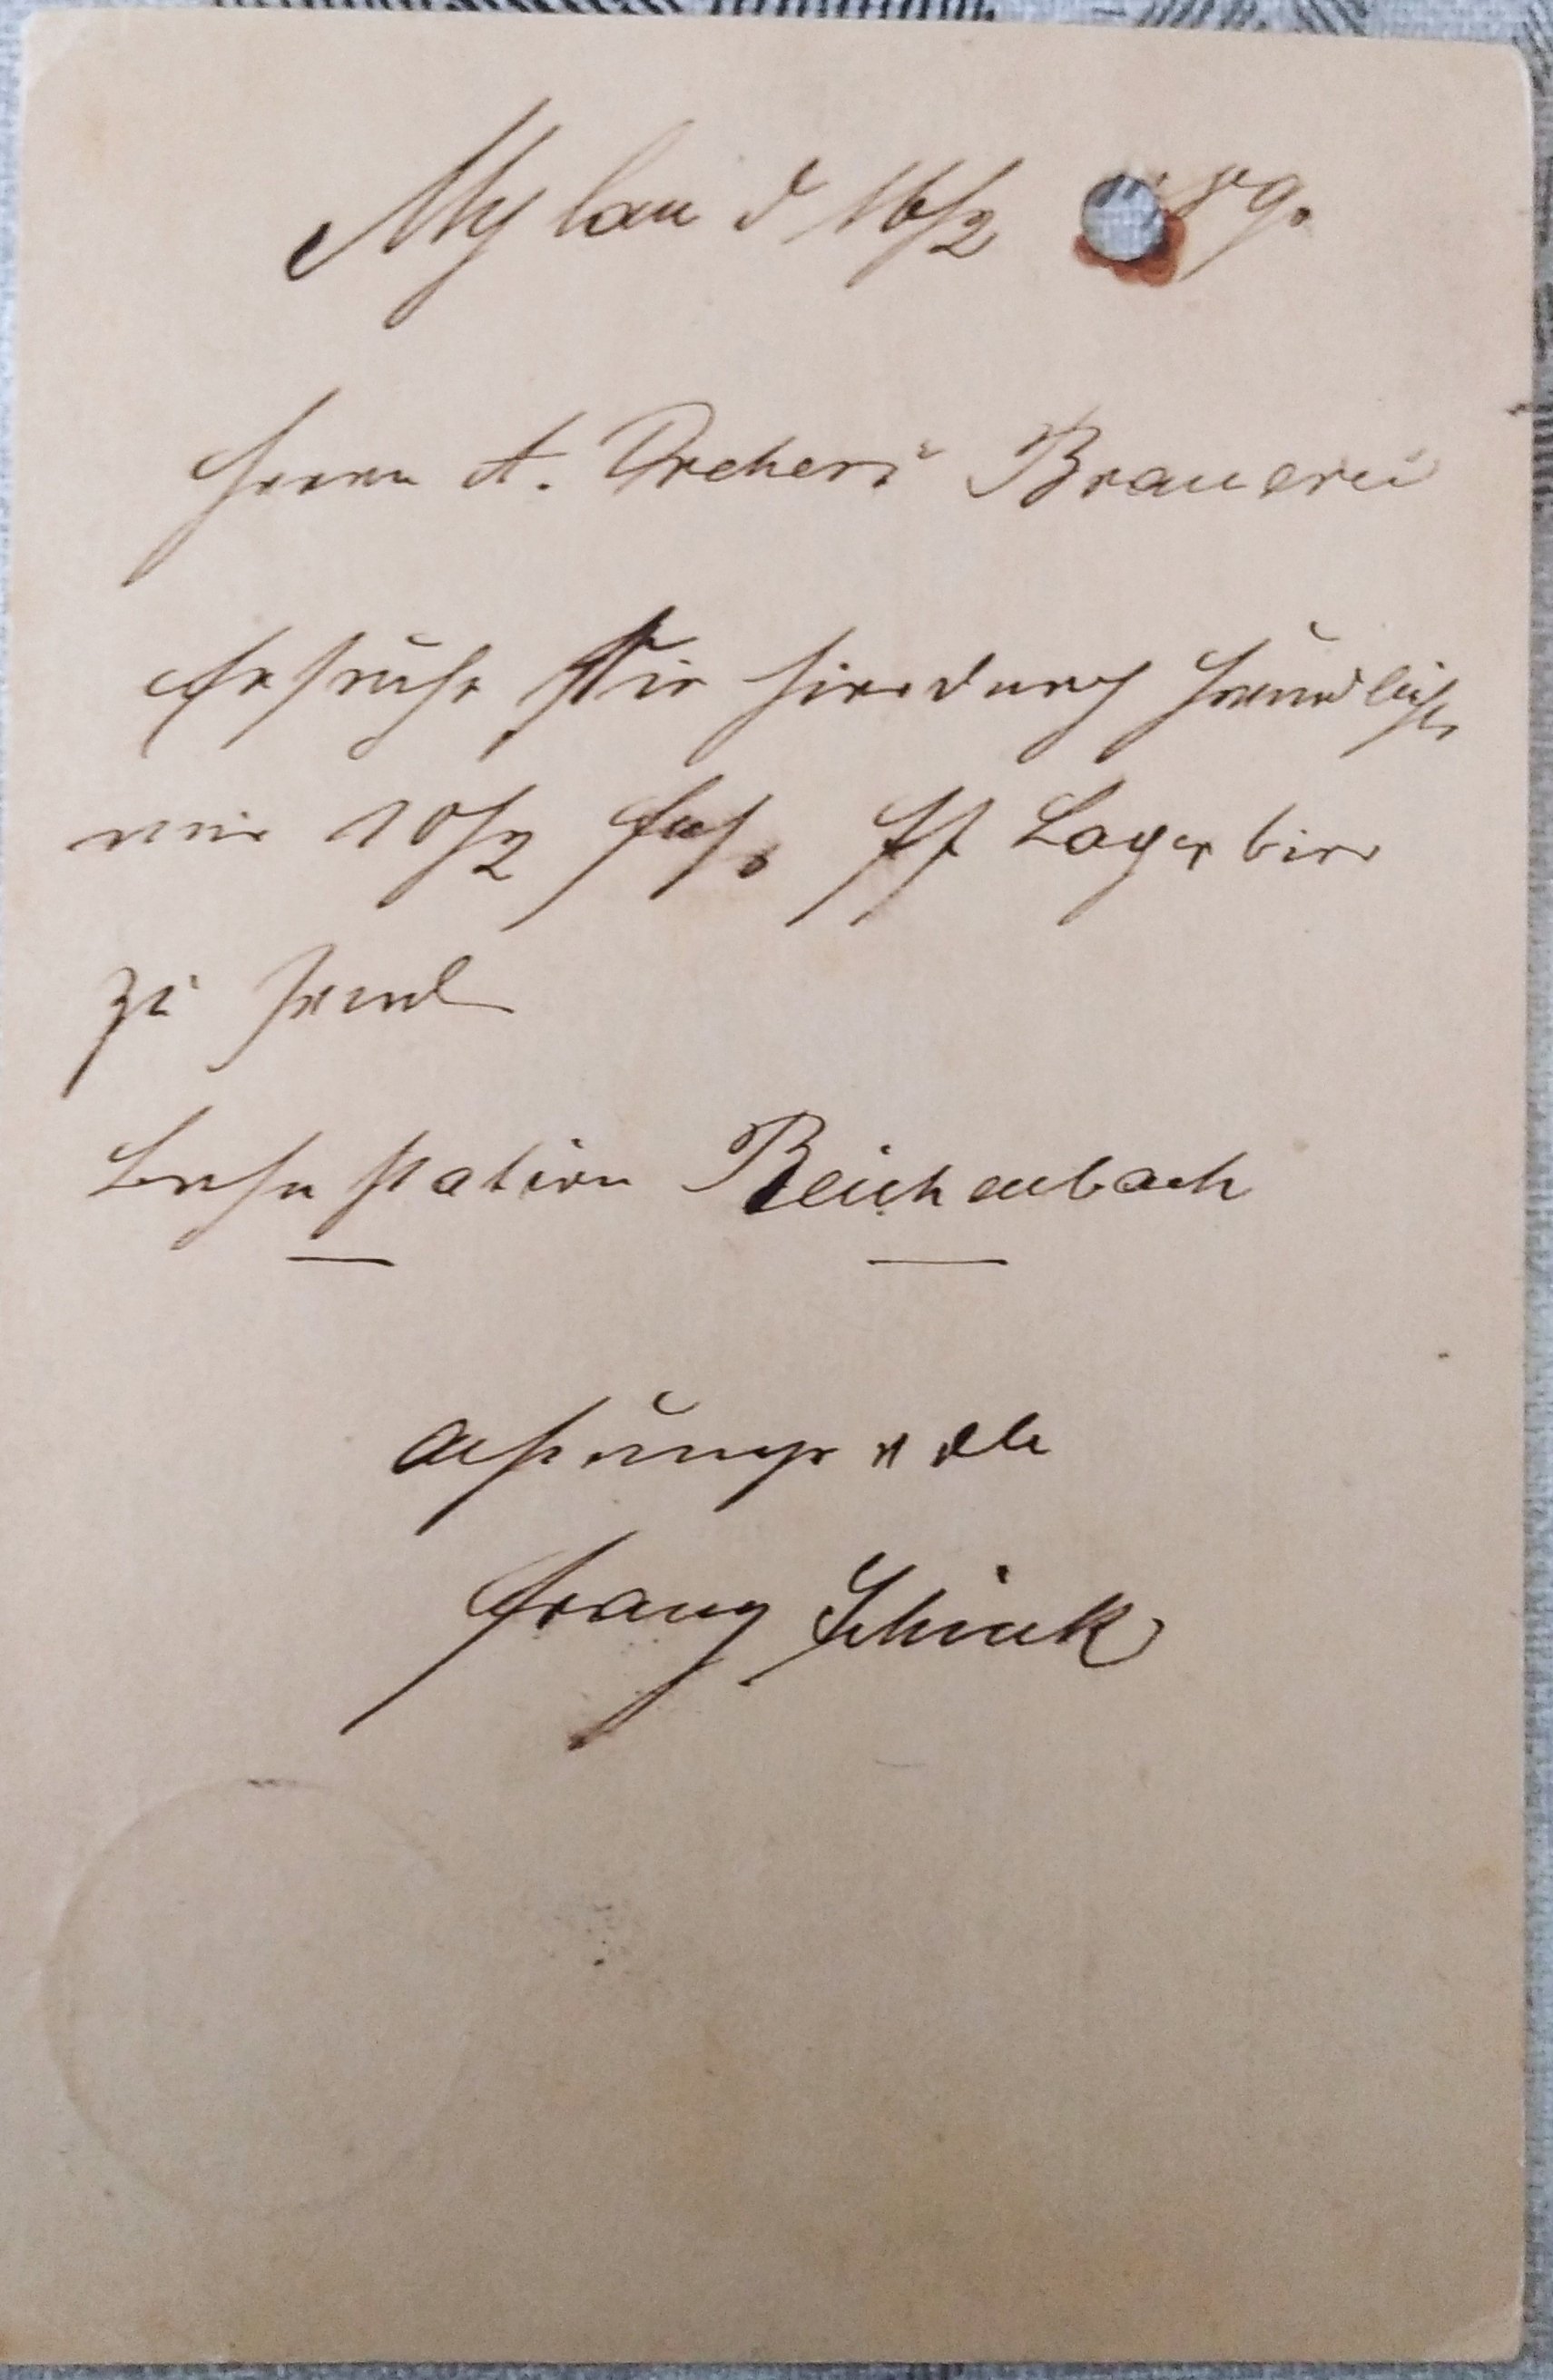 Mylau d 16/2 89.
Herrn A. Dreher's Brauerei
Ersuche Sie hierdurch freundlichst
mir 10/2 Faß ff Lagerbier
zu send
Bahnstation Reichenbach
Achtungsvoll
Franz Schink